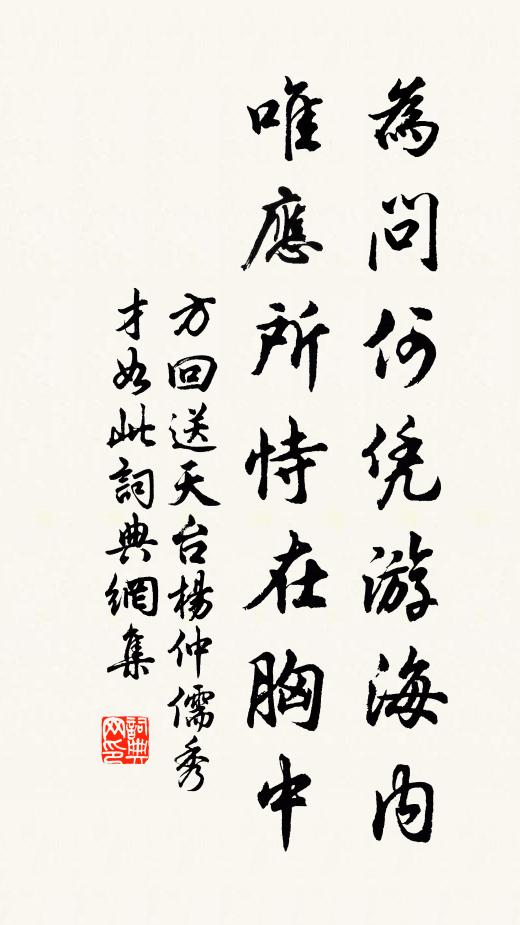 為問何凭游海内
唯應所恃在胸中
方回送天台楊仲儒秀
才如此詞典網集
詞典
网印